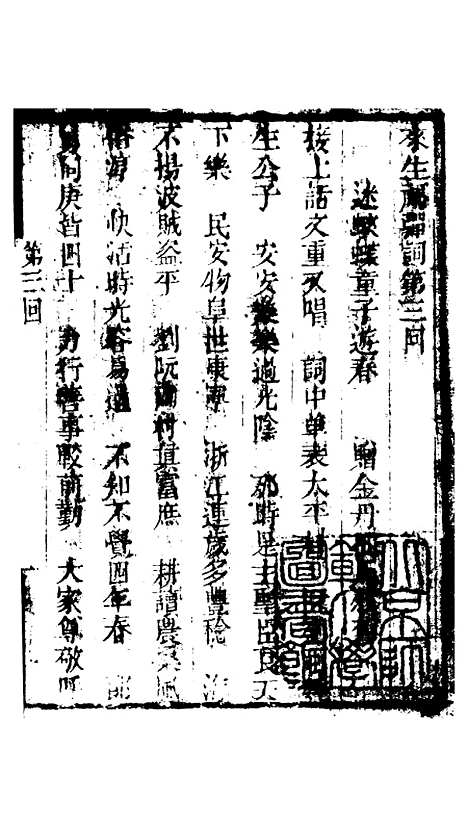 來生福彈詞第三回
迷蝴蝶童子遊春 贈金丹
接上話文重又唱 詞中單表太平
生公子 安安樂樂過光陰 那時是主聖臣良天
下樂 民安物阜世康寧 浙江連歲多豐稔 海
不揚波賊盜平 劉阮兩村真富庶 耕讀農
快活時光容易過 不知不覺四年春
同庚皆四十 力行善事較前勤 大家尊敬
第三回